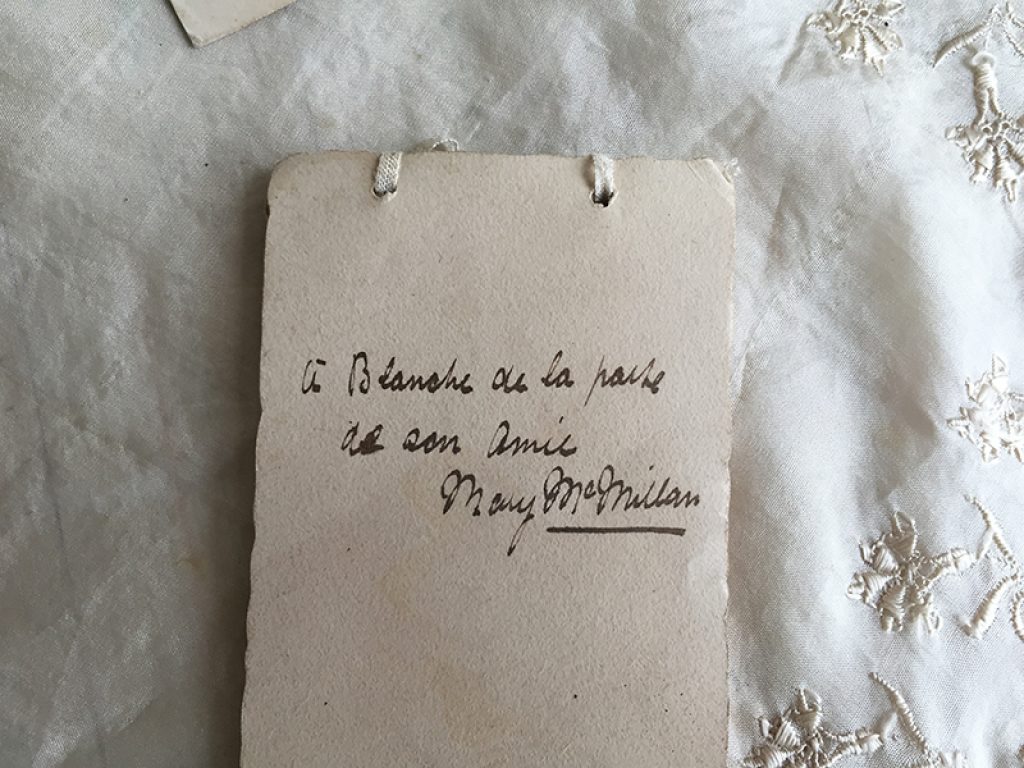 A Blanche de la parte
de son Amie
Mary McMillan